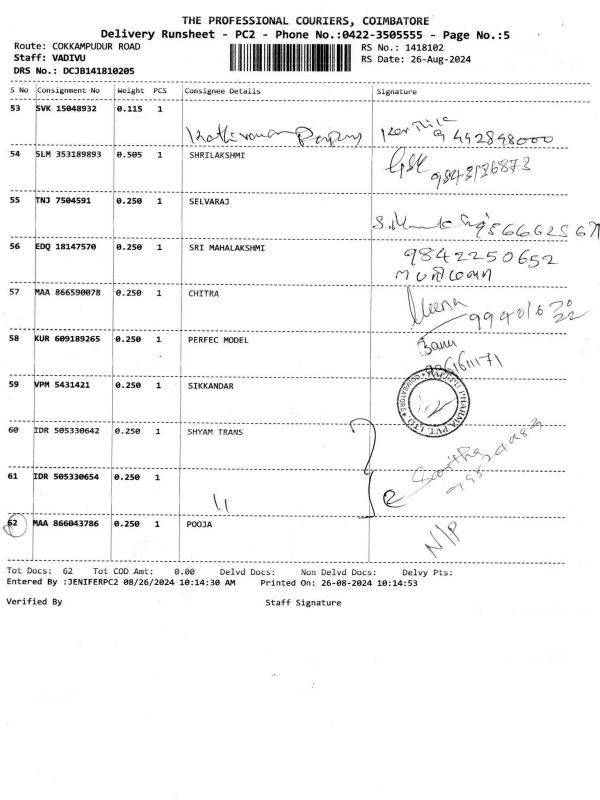 THE PROFESSIONAL COURIERS, COIMBATORE
Delivery Runsheet - PC2 - Phone No.:0422-3505555 - Page No.:5
Route: COKKAMPUDUR ROAD
RS No.: 1418102
Staff: VADIVU
RS Date: 26-Aug-2024
DRS No.: DCJB141810205
S No Consignment No Weight PCS Consignee Details Signature
53 SVK 15048932 0.115 1
9442848000
54 SLM 353189893 0.505 1 SHRILAKSHMI
9843136873
55 TNJ 7504591 0.250 1 SELVARAJ
56 EDQ 18147570 0.250 1 SRI MAHALAKSHMI
9842250652
57 MAA 866590078 0.250 1 CHITRA
Meena
58 KUR 609189265 0.250 1 PERFEC MODEL
Banu
59 VPM 5431421 0.250 1 SIKKANDAR
PHARMA PVT. LTD COIMBATORE
60 IDR 505330642 0.250 1 SHYAM TRANS
61 IDR 505330654 0.250 1
62 MAA 866043786 0.250 1 POOJA
N/P
Tot Docs: 62 Tot COD Amt: 0.00 Delvd Docs: Non Delvd Docs: Delvy Pts:
Entered By :JENIFERPC2 08/26/2024 10:14:30 AM Printed On: 26-08-2024 10:14:53
Verified By Staff Signature